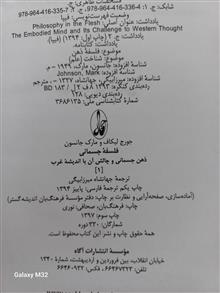 مشخصات ظاهری: ج.
شابک: ج. ۱: 4-336-416-964-978، ج. 7-335-416-964-978
وضعیت فهرست‌نویسی: فیپا
یادداشت: عنوان اصلی: Philosophy in the Flesh:
The Embodied Mind and its Challenge to Western Thought
یادداشت: ج. ۲ (چاپ اول: ۱۳۹۴) (فیپا).
یادداشت: کتابنامه.
موضوع: فلسفهٔ ذهن
موضوع: شناخت (علم)
شناسهٔ افزوده: جانسون، مارک، ۱۹۴۹ - م.
شناسهٔ افزوده: Johnson, Mark
شناسهٔ افزوده: میرزابیگی، جهانشاه، ۱۳۲۷ -، مترجم
رده‌بندی کنگره: ۱۳۹۳ ۸ ف ۹ ل / BD ۱۸۳
رده‌بندی دیویی: ۱۲۸
شمارهٔ کتابشناسی ملی: ۳۶۸۶۱۳۵
جورج لیکاف و مارک جانسون
فلسفهٔ جسمانی
ذهن جسمانی و چالش آن با اندیشهٔ غرب
[۱]
ترجمهٔ جهانشاه میرزابیگی
چاپ یکم ترجمهٔ فارسی: پاییز ۱۳۹۴
(آماده‌سازی، صفحه‌آرایی و نظارت بر چاپ: دفتر مؤسسهٔ فرهنگ‌بان اندیشه‌گستر)
چاپ: فرهنگ‌بان، صحافی: نوری
چاپ سوم: ۱۳۹۷
شمارگان: ۳۳۰ دوره
همهٔ حقوق چاپ و نشر این کتاب محفوظ است.
مؤسسهٔ انتشارات آگاه
خیابان انقلاب، بین فروردین و اردیبهشت، شمارهٔ ۱۳۴۰
GALAXY M32